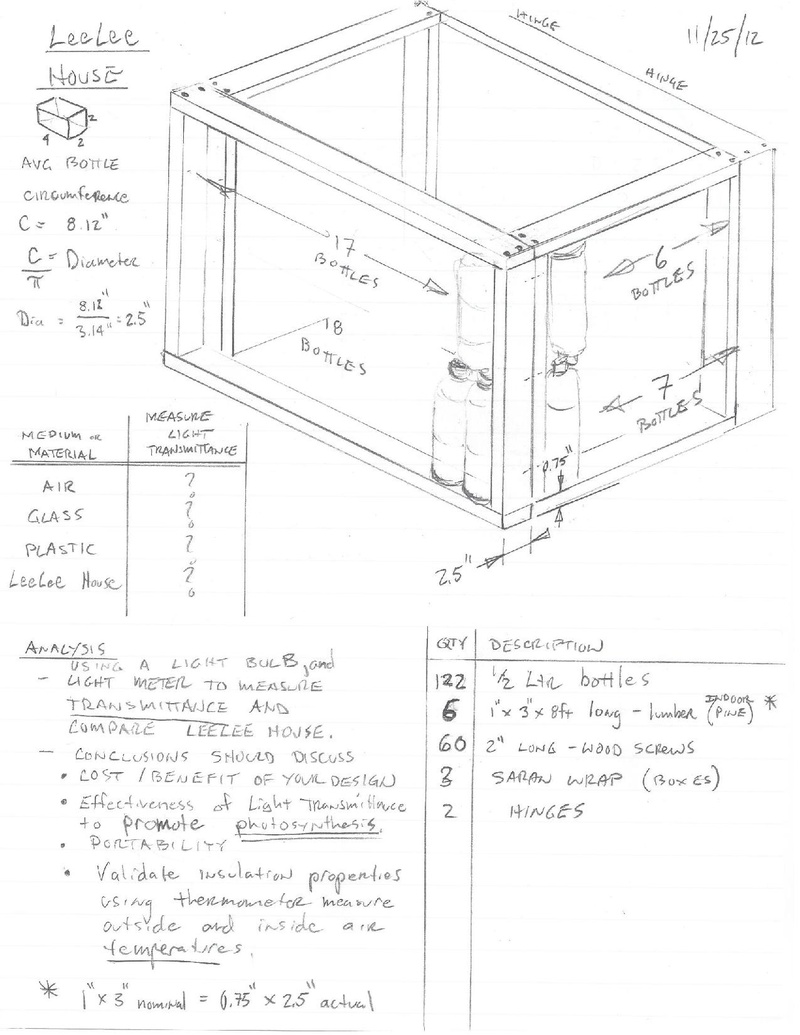 LeeLee
House
11/25/12
HINGE
HINGE
2
4 2
AVG BOTTLE
circumference
C = 8.12"
C = Diameter
π
Dia = 8.12" = 2.5"
3.14"
17
BOTTLES
18
BOTTLES
6
BOTTLES
7
BOTTLES
0.75"
2.5"
MEDIUM or MATERIAL
MEASURE LIGHT TRANSMITTANCE
AIR ?
GLASS ?
PLASTIC ?
LeeLee House ?
ANALYSIS
USING A LIGHT BULB, and
- LIGHT METER TO MEASURE
TRANSMITTANCE AND
COMPARE LEELEE HOUSE.
- CONCLUSIONS SHOULD DISCUSS
• COST / BENEFIT OF YOUR DESIGN
• Effectiveness of Light Transmittance
to promote photosynthesis.
• PORTABILITY
• Validate insulation properties
using thermometer measure
outside and inside air
temperatures.
* 1" x 3" nominal = 0.75" x 2.5" actual
QTY DESCRIPTION
122 1/2 Ltr bottles
6 1" x 3" x 8ft long - lumber (INDOOR PINE) *
60 2" LONG - WOOD SCREWS
3 SARAN WRAP (BOXES)
2 HINGES